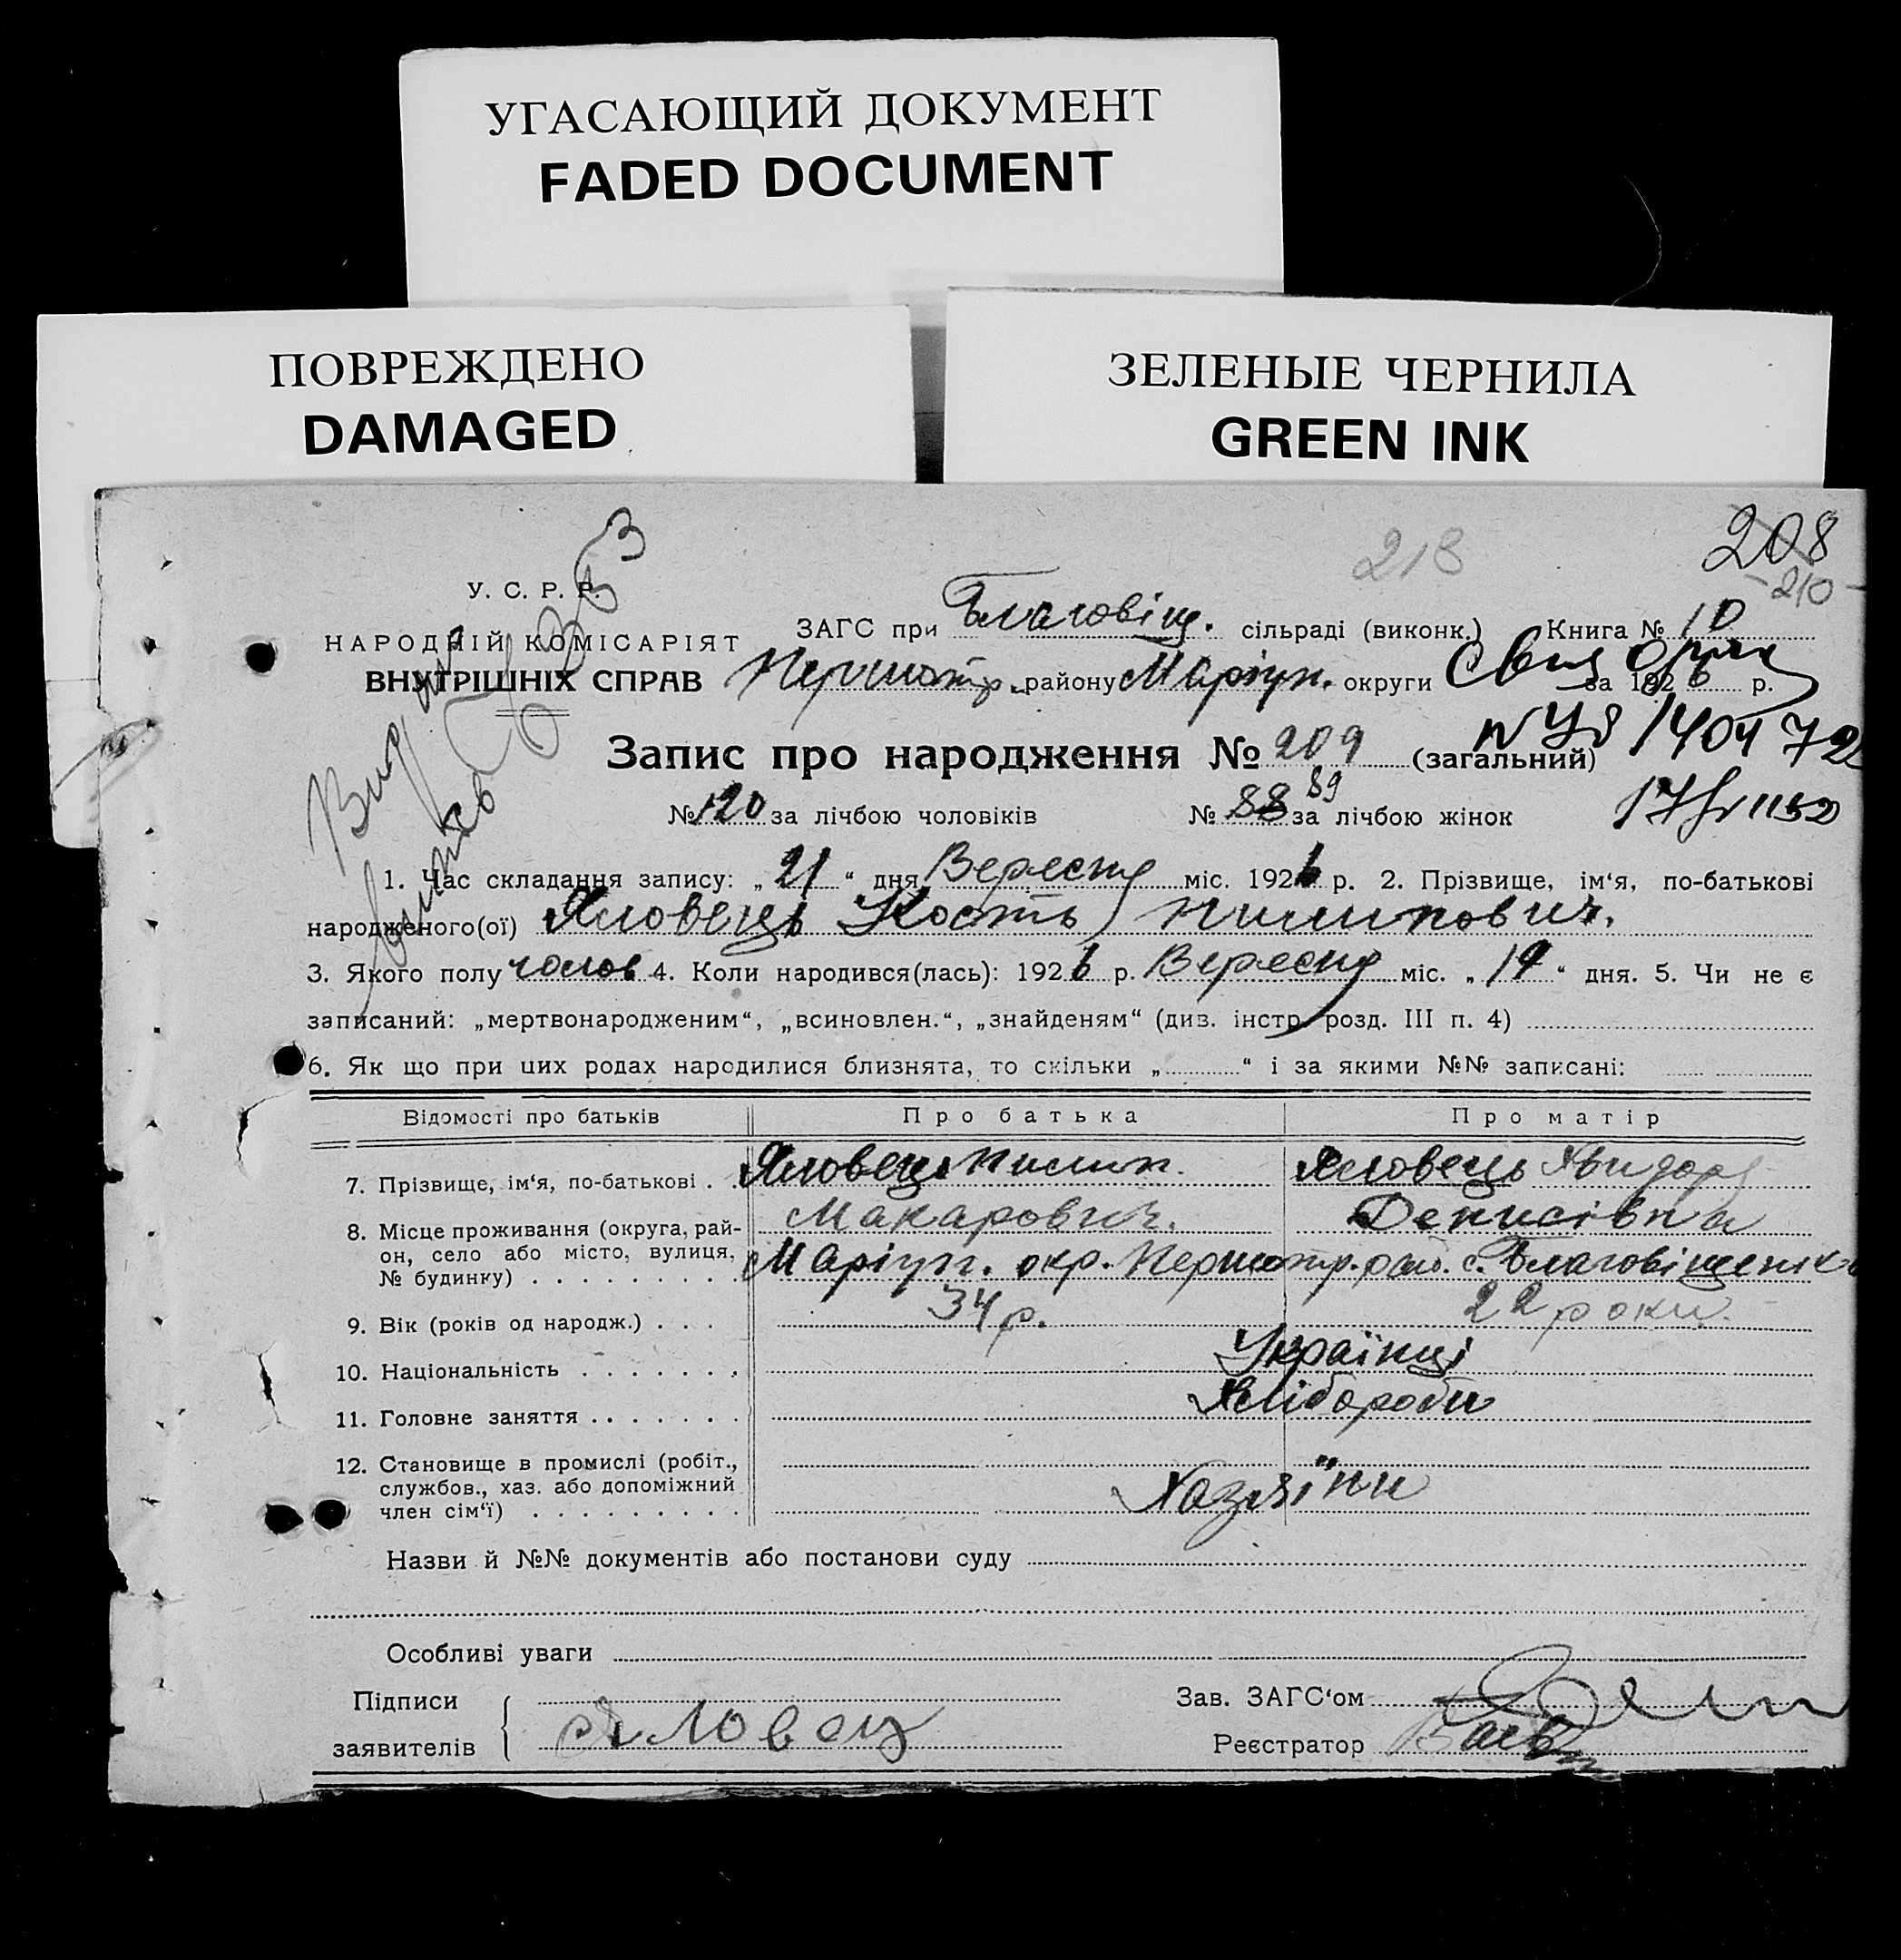 УГАСАЮЩИЙ ДОКУМЕНТ
FADED DOCUMENT
ПОВРЕЖДЕНО
DAMAGED
ЗЕЛЕНЫЕ ЧЕРНИЛА
GREEN INK
218
208
-210-
У. С. Р. Р.
НАРОДНІЙ КОМІСАРІЯТ
ВНУТРІШНІХ СПРАВ
ЗАГС при Благовіщ. сільраді (виконк.) Книга № 10
Першотр. району Маріуп. округи за 1926 р.
Запис про народження № 209 (загальний)
1404 72
№ 120 за лічбою чоловіків № 88 89 за лічбою жінок
1. Час складання запису: „ 21 “ дня Вересня міс. 1926 р. 2. Прізвище, ім‘я, по-батькові
народженого(ої) Яловець Кость Пилипович.
3. Якого полу чолов 4. Коли народився(лась): 1926 р. Вересня міс. „ 19 “ дня. 5. Чи не є
записаний: „мертвонародженим“, „всиновлен.“, „знайденям“ (див. інстр. розд. III п. 4)
6. Як що при цих родах народилися близнята, то скільки „ “ і за якими №№ записані:
Відомості про батьків Про батька Про матір
7. Прізвище, ім‘я, по-батькові . . Яловець Пилип. Яловець
Макарович. Денисівна
8. Місце проживання (округа, рай-
он, село або місто, вулиця,
№ будинку) . . . . . . . . . Маріуп. окр. Першотр. рай. с. Благовіщенка
9. Вік (років од народж.) . . . 34 р. 22 роки.
10. Національність . . . . . . . Українці
11. Головне заняття . . . . . . . Хлібороби
12. Становище в промислі (робіт.,
службов., хаз. або допоміжний
член сім‘ї) . . . . . . . . . Хазяїни
Назви й №№ документів або постанови суду
Особливі уваги
Підписи
заявителів Яловец
Зав. ЗАГС‘ом
Реєстратор